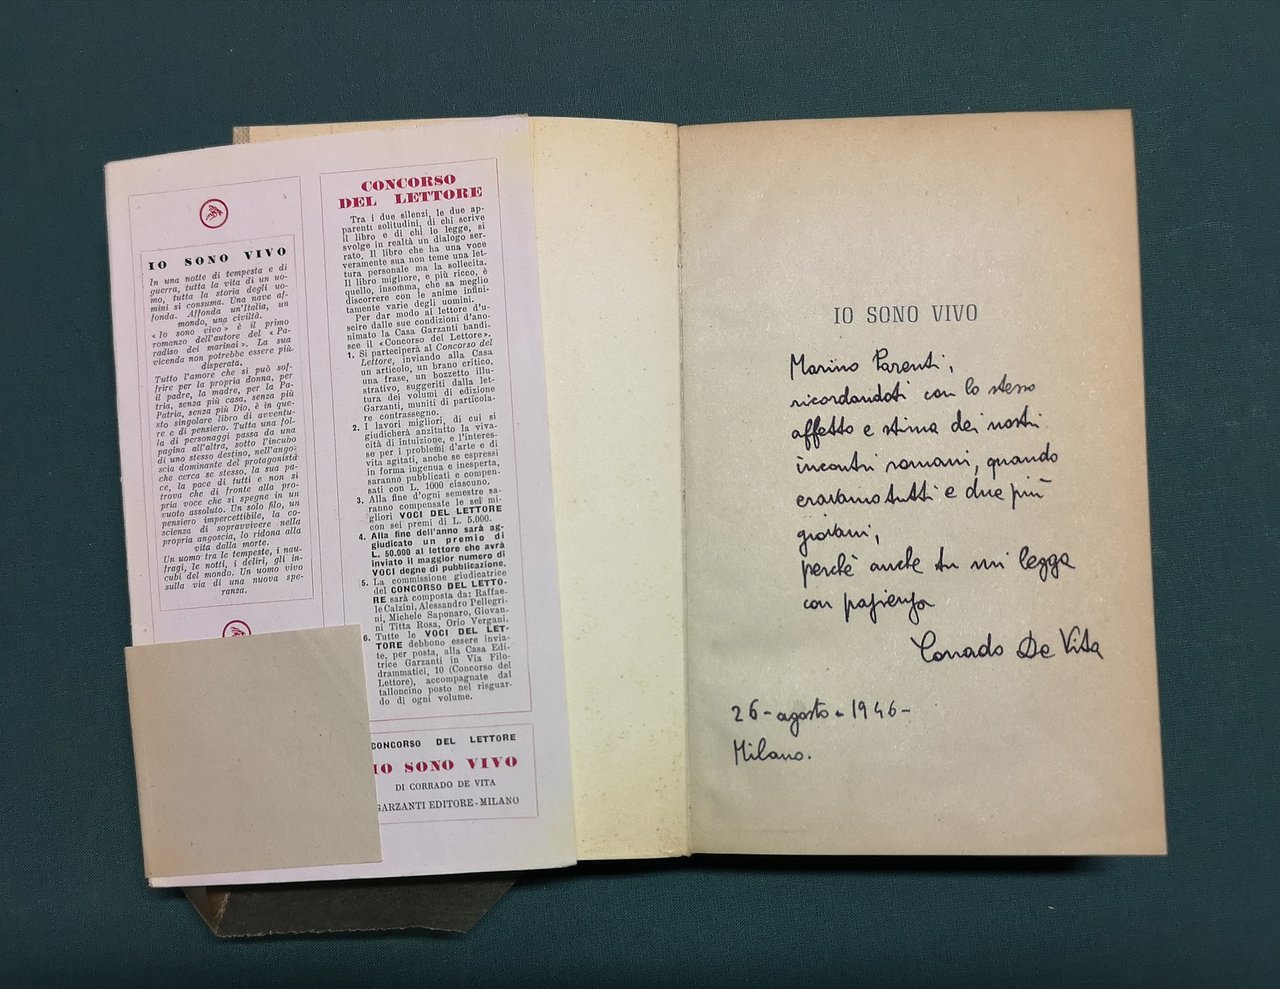 IO SONO VIVO
In una notte di tempesta e di
guerra, tutta la vita di un uo-
mo, tutta la storia degli uo-
mini si consuma. Una nave af-
fonda. Affonda un'Italia, un
mondo, una civiltà.
« Io sono vivo » è il primo
romanzo dell'autore del « Pa-
radiso dei marinai ». La sua
vicenda non potrebbe essere più
disperata.
Tutto l'amore che si può sof-
frire per la propria donna, per
il padre, la madre, per la Pa-
tria, senza più casa, senza più
Patria, senza più Dio, è in que-
sto singolare libro di avventu-
re e di pensiero. Tutta una fol-
la di personaggi passa da una
pagina all'altra, sotto l'incubo
di uno stesso destino, nell'ango-
scia dominante del protagonista
che cerca se stesso, la sua pa-
ce, la pace di tutti e non si
trova che di fronte alla pro-
pria voce che si spegne in un
vuoto assoluto. Un solo filo, un
pensiero impercettibile, la co-
scienza di sopravvivere nella
propria angoscia, lo ridona alla
vita dalla morte.
Un uomo tra le tempeste, i nau-
fragi, le notti, i deliri, gli in-
cubi del mondo. Un uomo vivo
sulla via di una nuova spe-
ranza.
CONCORSO
DEL LETTORE
Tra i due silenzi, le due ap-
parenti solitudini, di chi scrive
il libro e di chi lo legge, si
svolge in realtà un dialogo ser-
rato. Il libro che ha una voce
veramente sua non teme una let-
tura personale ma la sollecita.
Il libro migliore, e più ricco, è
quello, insomma, che sa meglio
discorrere con le anime infini-
tamente varie degli uomini.
Per dar modo al lettore d'u-
scire dalle sue condizioni d'ano-
nimato la Casa Garzanti bandi-
sce il «Concorso del Lettore».
1. Si parteciperà al Concorso del
Lettore, inviando alla Casa
un articolo, un brano critico,
una frase, un bozzetto illu-
strativo, suggeriti dalla let-
tura dei volumi di edizione
Garzanti, muniti di particola-
re contrassegno.
2. I lavori migliori, di cui si
giudicherà anzitutto la viva-
cità di intuizione, e l'interes-
se per i problemi d'arte e di
vita agitati, anche se espressi
in forma ingenua e inesperta,
saranno pubblicati e compen-
sati con L. 1000 ciascuno.
3. Alla fine d'ogni semestre sa-
ranno compensate le sei mi-
gliori VOCI DEL LETTORE
con sei premi di L. 5.000.
4. Alla fine dell'anno sarà ag-
giudicato un premio di
L. 50.000 al lettore che avrà
inviato il maggior numero di
VOCI degne di pubblicazione.
5. La commissione giudicatrice
del CONCORSO DEL LETTO-
RE sarà composta da: Raffae-
le Calzini, Alessandro Pellegri-
ni, Michele Saponaro, Giovan-
ni Titta Rosa, Orio Vergani.
6. Tutte le VOCI DEL LET-
TORE debbono essere invia-
te, per posta, alla Casa Edi-
trice Garzanti in Via Filo-
drammatici, 10 (Concorso del
Lettore), accompagnate dal
talloncino posto nel risguar-
do di ogni volume.
CONCORSO DEL LETTORE
IO SONO VIVO
DI CORRADO DE VITA
GARZANTI EDITORE - MILANO
IO SONO VIVO
Marino Parenti,
ricordandoti con lo stesso
affetto e stima dei nostri
incontri romani, quando
eravamo tutti e due più
giovani;
perchè anche tu mi legga
con pazienza
Corrado De Vita
26 - agosto - 1946 -
Milano.